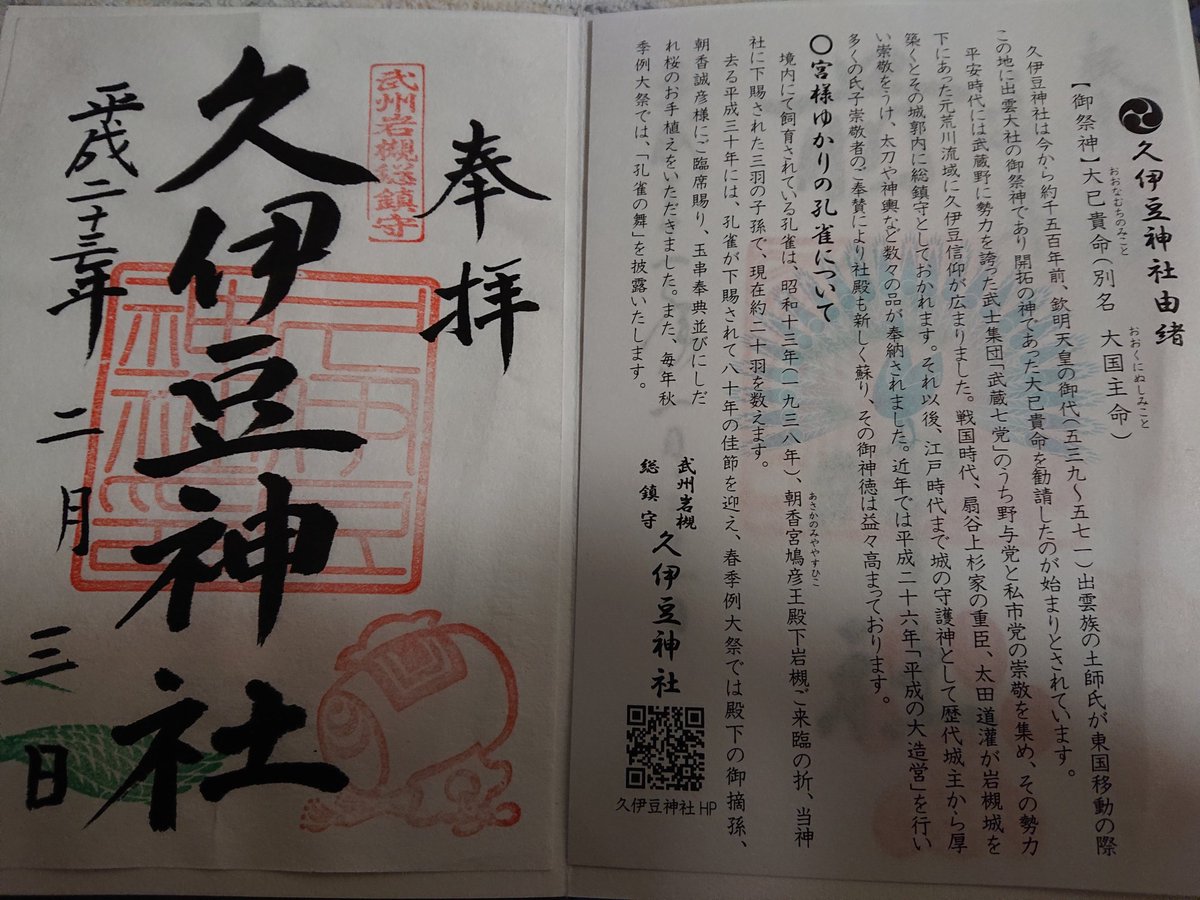 久伊豆神社由緒
【御祭神】大已貴命(別名 大国主命)
おおなむちのみこと
おおくにぬしみこと
久伊豆神社は今から約千五百年前、欽明天皇の御代(五三九〜五七一)出雲族の土師氏が東国移動の際
この地に出雲大社の御祭神であり開拓の神であった大已貴命を勧請したのが始まりとされています。
平安時代には武蔵野に勢力を誇った武士集団「武蔵七党」のうち野与党と私市党の崇敬を集め、その勢力
下にあった元荒川流域に久伊豆信仰が広まりました。戦国時代、扇谷上杉家の重臣、太田道灌が岩槻城を
築くとその城郭内に総鎮守としておかれます。それ以後、江戸時代まで城の守護神として歴代城主から厚
い崇敬をうけ、太刀や神輿など数々の品が奉納されました。近年では平成二十六年「平成の大造営」を行い
多くの氏子崇敬者のご奉賛により社殿も新しく蘇り、その御神徳は益々高まっております。
〇宮様ゆかりの孔雀について
境内にて飼育されている孔雀は、昭和十三年(一九三八年)、朝香宮鳩彦王殿下岩槻ご来臨の折、当神
あさかのみややすひこ
社に下賜された三羽の子孫で、現在約二十羽を数えます。
去る平成三十年には、孔雀が下賜されて八十年の佳節を迎え、春季例大祭では殿下の御摘孫、
朝香誠彦様にご臨席賜り、玉串奉典並びにしだ
れ桜のお手植えをいただきました。また、毎年秋
季例大祭では、「孔雀の舞」を披露いたします。
武州岩槻
総鎮守
久伊豆神社
久伊豆神社HP
奉拝
武州岩槻総鎮守
久伊豆神社
平成二十三年 二月 三日